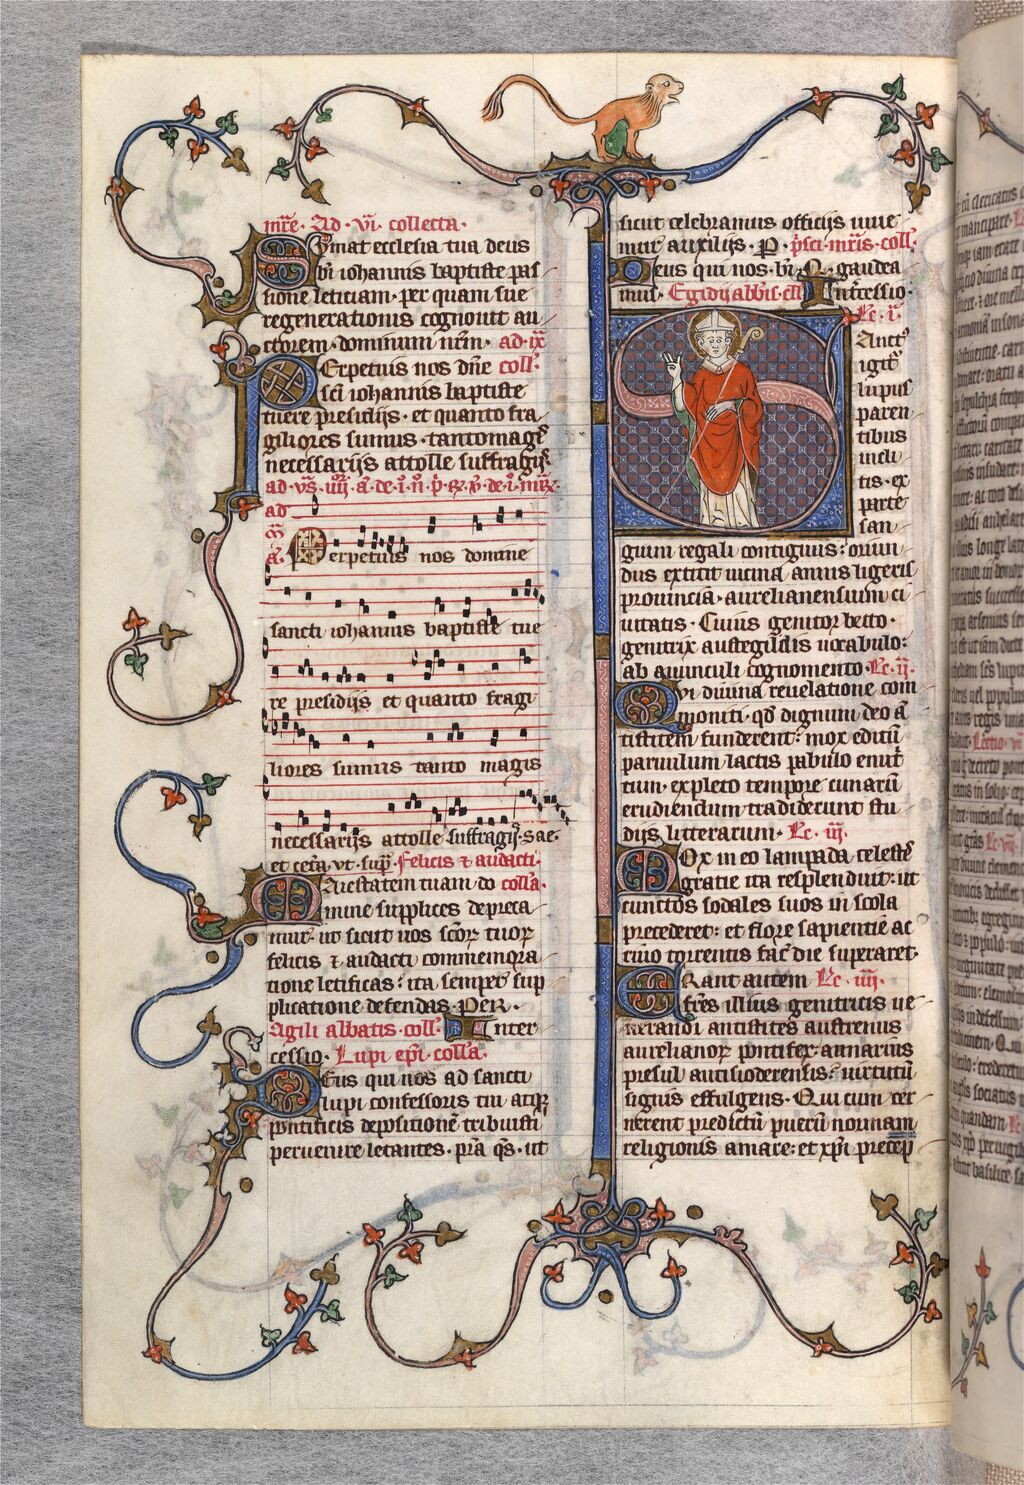 mr̄e. Ad. vi. collecta.
Sumat ecclesia tua deus
bt̄i iohannis baptiste pas
sione leticiam. per quam sue
regenerationis cognouit au
ctorem. dominum nr̄m. ad. ix
Perpetuis nos dn̄e coll'.
sc̄i iohannis baptiste
tuere presidijs. et quanto fra
giliores sumus. tantomagꝭ
necessarijs attolle suffragijs.
ad
Perpetuis nos domine
sancti iohannis baptiste tue
re presidijs et quanto fragi
liores sumus tanto magis
necessarijs attolle suffragijs. Sae.
et cet̄a. vt. sup̄. felicis ⁊ audacti.
Maiestatem tuam do coll'a.
mine supplices depreca
mur. ut sicut nos sc̄oꝝ tuoꝝ
felicis ⁊ audacti commemora
tione letificas: ita semper sup
plicatione defendas. PER.
Agili abbatis. coll'. Inter
cessio. Lupi ep̄i. coll'a.
Deus qui nos ad sancti
lupi confessoris tui atqꝫ
pontificis depositionē tribuisti
peruenire letantes. p̄ta q̄s. ut
sicut celebramus officijs iuue
mur auxilijs. P. p̄sci. mr̄is. coll'.
Deus qui nos. bt̄i. P. gaudea
mus. Egidij abb̄is. coll' Int̄cessio.
Lc. i.
Sanct'
igit'
lupus
paren
tibus
incli
tis. ex
parte
san
guini regali contiguis: oriun
dus extitit uicina amnis ligeris
prouincia. aurelianensium ci
uitatis. Cuius genitor betto.
genitrix austegildis uocabulo:
ab auunculi cognomento. Lc. ij.
Qui diuina reuelatione com
moniti. qd̄ dignum deo ā
tistitem funderent: mox editū
paruulum lactis pabulo enut̄
tum. expleto tempore cunarū
erudiendum tradiderunt stu
dijs litterarum. Lc. iij.
Mox in eo lampada celestis
gratie ita resplenduit: ut
cunctos sodales suos in scola
precederet: et flore sapientie ac
cuio torrentis fac̄die superaret.
Erant autem Lc. iiij.
fr̄es illius genitricis ue
nerandi antistites austrenus
aurelianoꝝ pontifex. annarius
presul autisioderensis: uirtutū
signis effulgens. Qui cum cer
nerent predictū puerū normam
religionis amare: et xp̄i precep